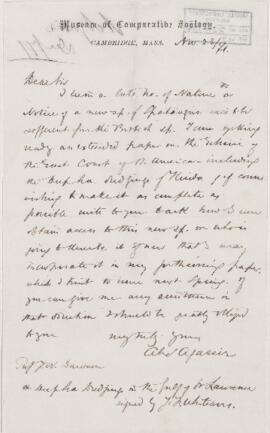 Museum of Comparative Zoology,
CAMBRIDGE, MASS. Nov 22/71.
Dear Sir
I see in a late no. of Nature
Notice of a new sp. of Spatangus said to be
different for the British sp. I am getting
ready an extended paper on the Echini of
the East Coast of N. America including
the deep sea dredgings of Florida & of course
wishing to make it as complete as
possible write to you to ask how I can
obtain access to this new sp. or who is
going to describe it if new that I may
incorporate it in my forthcoming paper
which I hint to issue next Spring. If
you can give me any assistance in
that direction I should be greatly obliged
to you
very truly yours
Alex Agassiz
Prof Dawson
on deep sea Dredgings in the Gulf of St Lawrence
signed by J. Whiteaves.